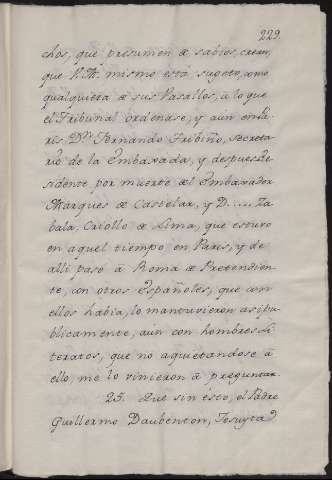 229.
chos, que presumen de sabios, creen,
que V. M. mismo está sugeto, como
qualquiera de sus Vasallos, à lo que
el Tribunal ordenase, y aún en Pa-
rís Dn. Fernando Tribiño, Secreta-
rio de la Embaxada, y despues Re-
sidente por muerte del Embaxador
Marques de Castelar, y D..... Za-
bala, Criollo de Lima, que estuvo
en aquel tiempo en Paris, y de
alli pasó à Roma de Pretendien-
te, con otros Españoles, que con
ellos habia, lo mantuvieron asi pu-
blicamente, aún con hombres Li-
teratos, que no aquetandose à
ello, me lo vinieron à preguntar.
25. Que sin ésto, el Padre
Guillermo Daubenton, Jesuyta